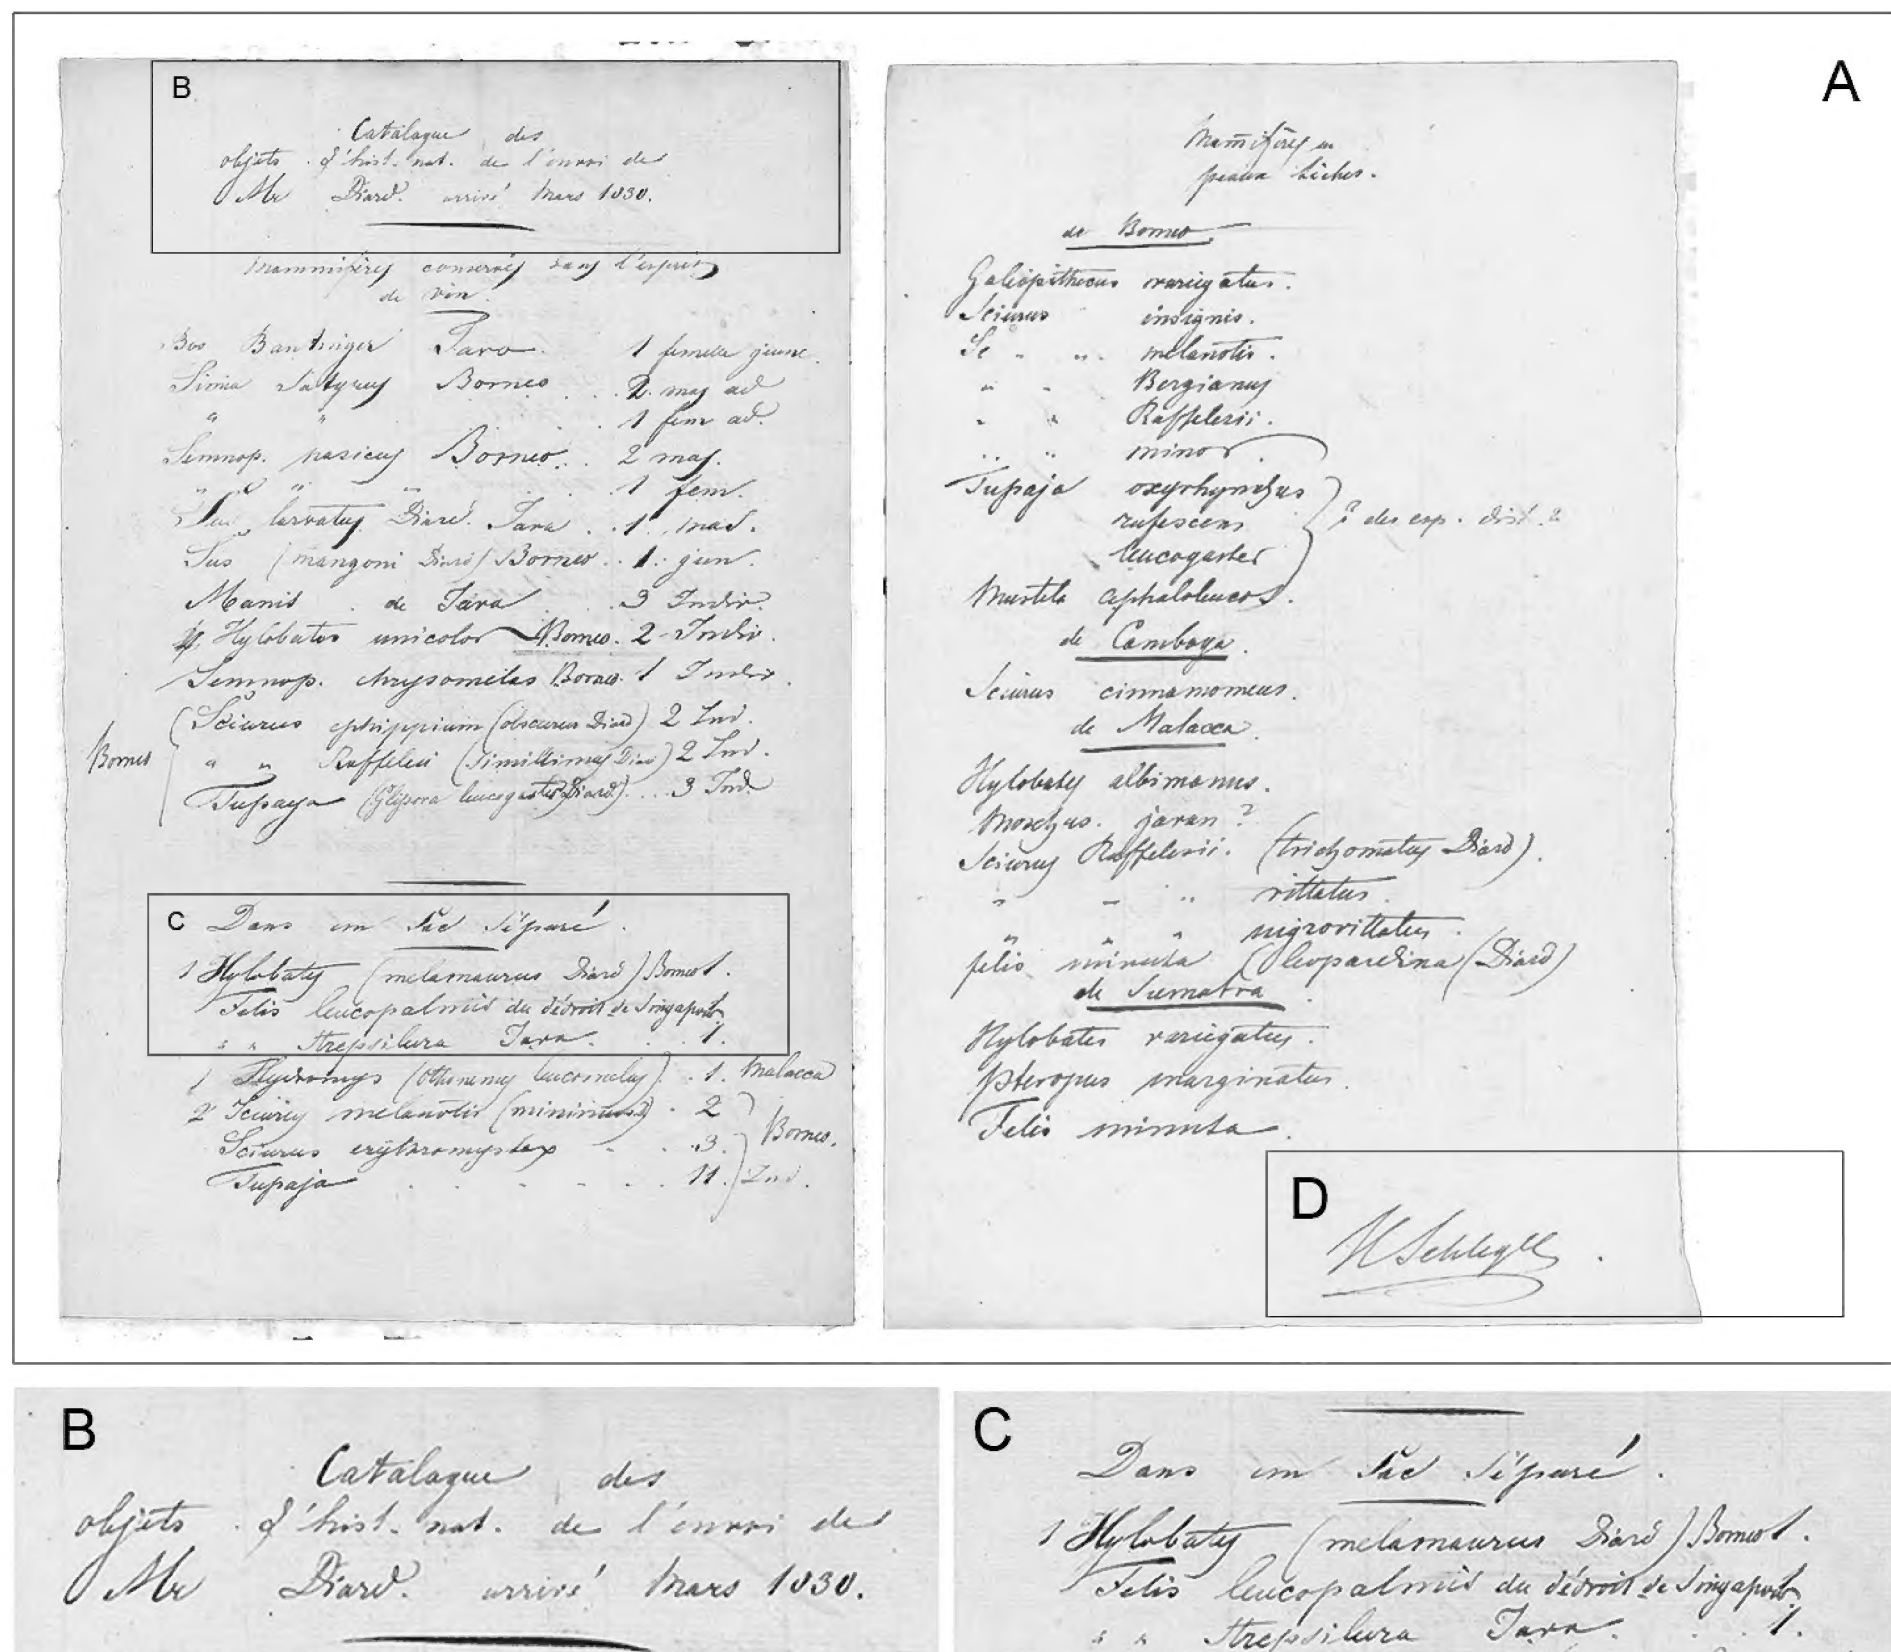 A
B
Catalague des
objets d'hist. nat. de l'envoi de
Mr Diard. arrivé Mars 1830.
Mammifères conservés dans l'esprit
de vin.
Bos Bantinger Java. 1 femelle jeune.
Simia Satyrus Borneo . . . 2. mas ad
" " . . . 1 fem ad.
Semnop. nasicus Borneo . . 2 mas.
" " " . . 1 fem.
larvatus Diard. Java . . 1. mas.
Sus (mangoni Diard) Borneo . . 1. jun.
Manis . de Java . . 3 Indiv.
Hylobates unicolor Borneo. 2 Indiv.
Semnop. chrysomelas Borneo. 1 Indiv.
Borneo
Sciurus ephippium (obscurus Diard) 2 Ind.
" " Raffelesi (simillimus Diard) 2 Ind.
Tupaya (Glipora leucogaster Diard) . . . 3 Ind.
C
Dans un Sac Séparé.
1 Hylobates (melamaurus Diard) Borneo 1.
Felis leucopalmis du détroit de Singapore
" " strepsilura Java. . . 1.
1 Hydromys (leucomelas) . 1. Malacca
2 Sciurus melanotis (minimus) . 2
Sciurus erythromystax . . 3. Borneo.
Tupaja . . . . . . 11. Ind.
Mammifères en
peaux sèches.
de Borneo
Galeopithecus variegatus.
Sciurus insignis.
Sc " " melanotis.
" " Bergianus
" " Raffelesii.
" " minor.
Tupaja oxyrhynchus
rufescens ? des esp. dist. ?
leucogaster
Mustela cephaloleucos.
de Camboya.
Sciurus cinnamomeus.
de Malacca.
Hylobates albimanus.
Moschus. javan ?
Sciurus Raffelesii. (trichomatus Diard).
" " " vittatus.
" " " nigrovittatus.
felis minuta (leopardina (Diard)
de Sumatra.
Hylobates variegatus.
Pteropus marginatus.
Felis minuta.
D
H Schlegel.
B
Catalague des
objets d'hist. nat. de l'envoi de
Mr Diard. arrivé Mars 1830.
C
Dans un Sac Séparé.
1 Hylobates (melamaurus Diard) Borneo 1.
Felis leucopalmis du détroit de Singapore
" " strepsilura Java. . . 1.